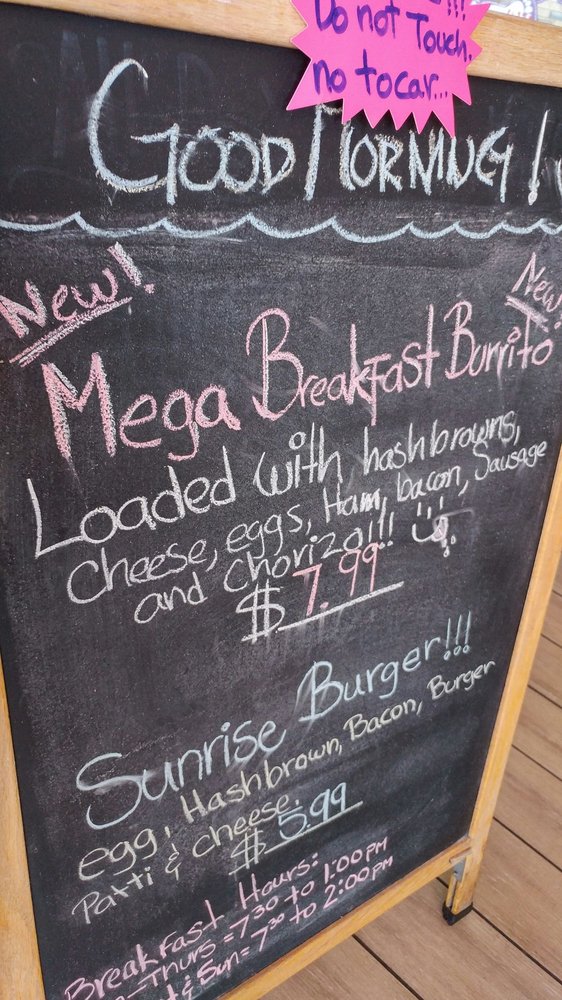 Do not Touch.
no tocar...
GOOD MORNING!
New!
New!
Mega Breakfast Burrito
Loaded with hashbrowns,
cheese, eggs, Ham, bacon, Sausage
and chorizo!!!
$7.99
Sunrise Burger!!!
egg, Hashbrown, Bacon, Burger
Patti & cheese.
$5.99
Breakfast Hours:
-Thurs = 7:30 to 1:00 PM
& Sun = 7:30 to 2:00 PM